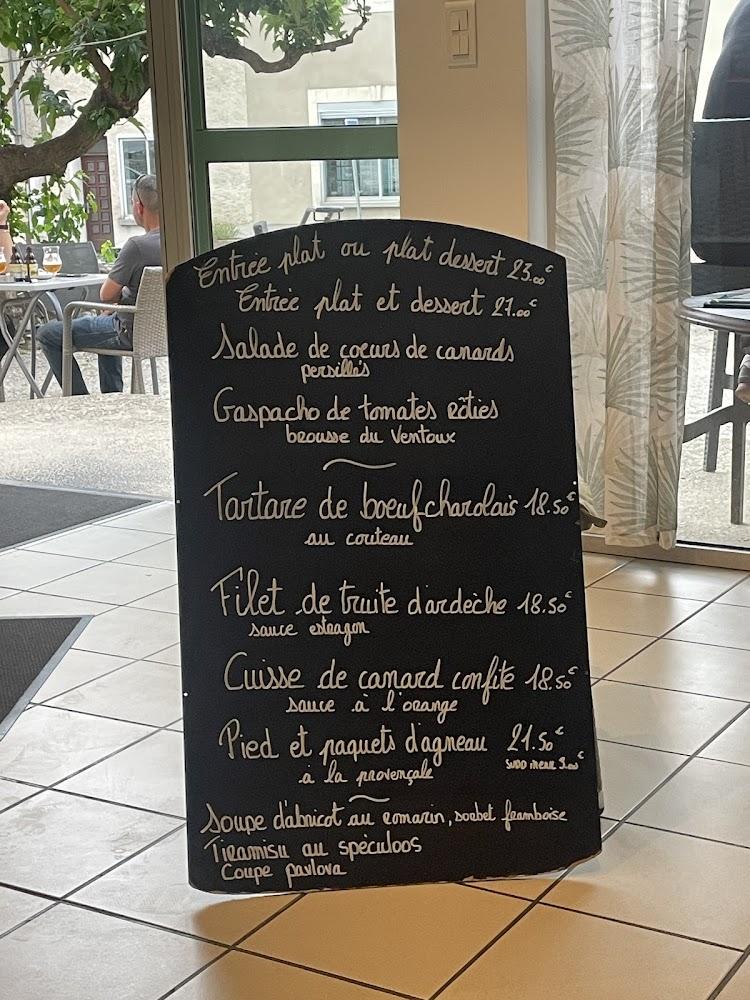 Entrée plat ou plat dessert 23.00€
Entrée plat et dessert 27.00€
Salade de coeurs de canards
persillés
Gaspacho de tomates rôties
brousse du Ventoux
Tartare de boeuf charolais 18.50€
au couteau
Filet de truite d'ardèche 18.50€
sauce estragon
Cuisse de canard confite 18.50€
sauce à l'orange
Pied et paquets d'agneau 21.50€
à la provençale SUPP MENU 3.00€
Soupe d'abricot au romarin, sorbet framboise
Tiramisu au spéculoos
Coupe pavlova